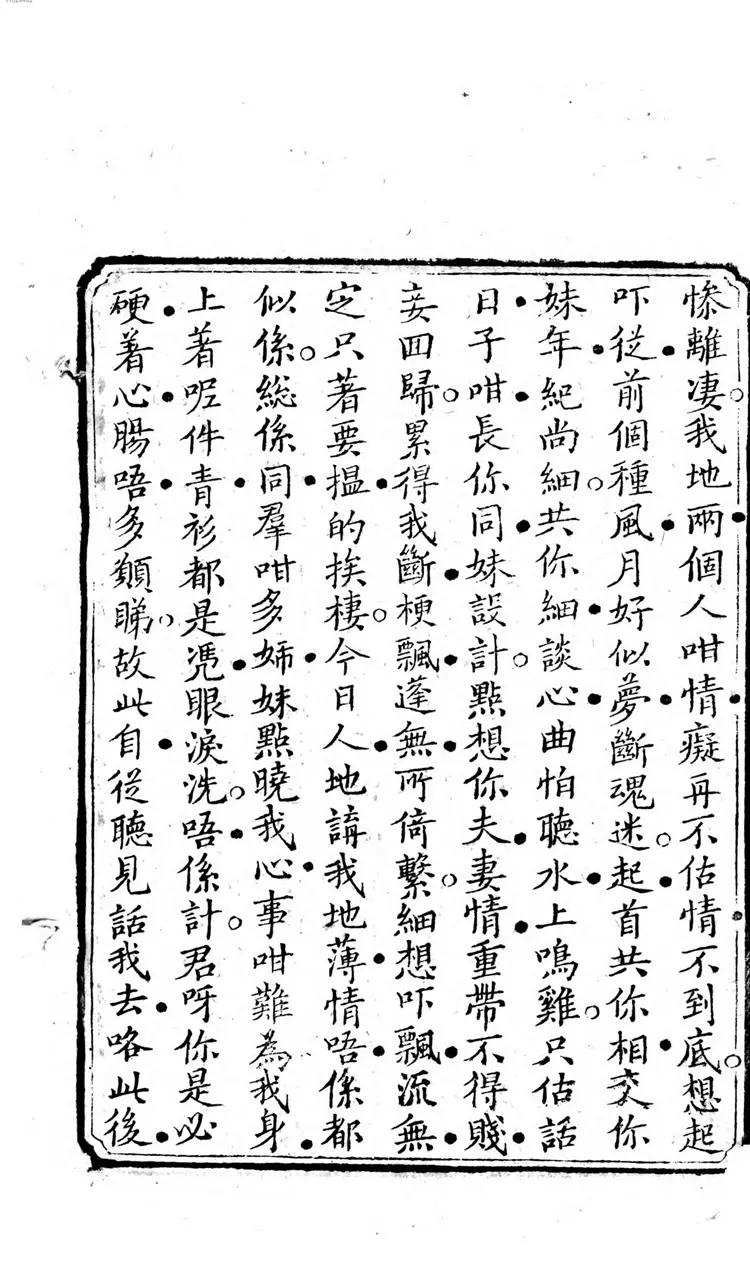 慘離淒我地兩個人咁情癡再不估情不到底想起
吓從前個種風月好似夢斷魂迷起首共你相交你
妹年紀尚細共你細談心曲怕聽水上鳴雞只估話
日子咁長你同妹設計點想你夫妻情重帶不得賤
妾囬歸累得我斷梗飄蓬無所倚繫細想吓飄流無
定只著要揾的挨棲今日人地講我地薄情唔係都
似係総係同羣咁多姊妹點曉我心事咁難為我身
上著呢件青衫都是凴眼淚洗唔係計君呀你是必
硬着心腸唔多顧睇故此自從聽見話我去咯此後